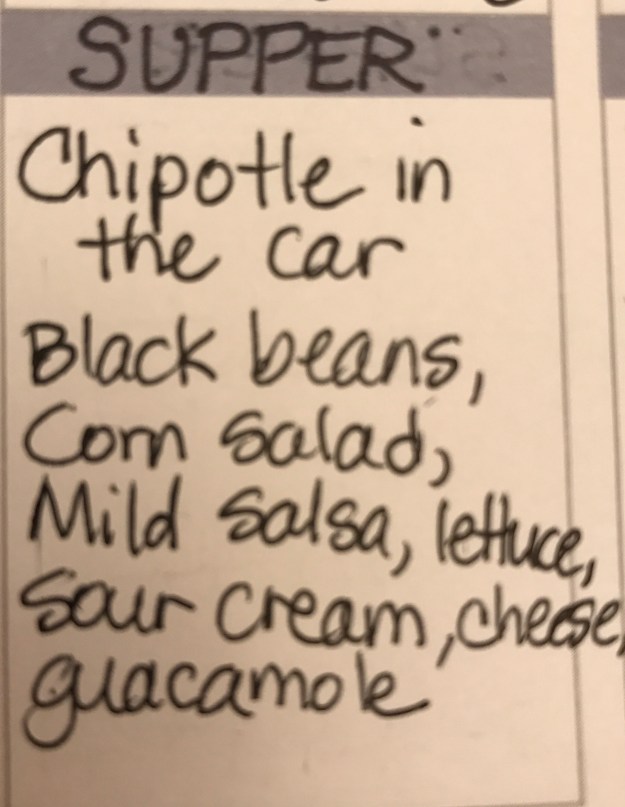 SUPPER
Chipotle in
the car
Black beans,
Corn Salad,
Mild Salsa, lettuce,
Sour cream, cheese,
guacamole